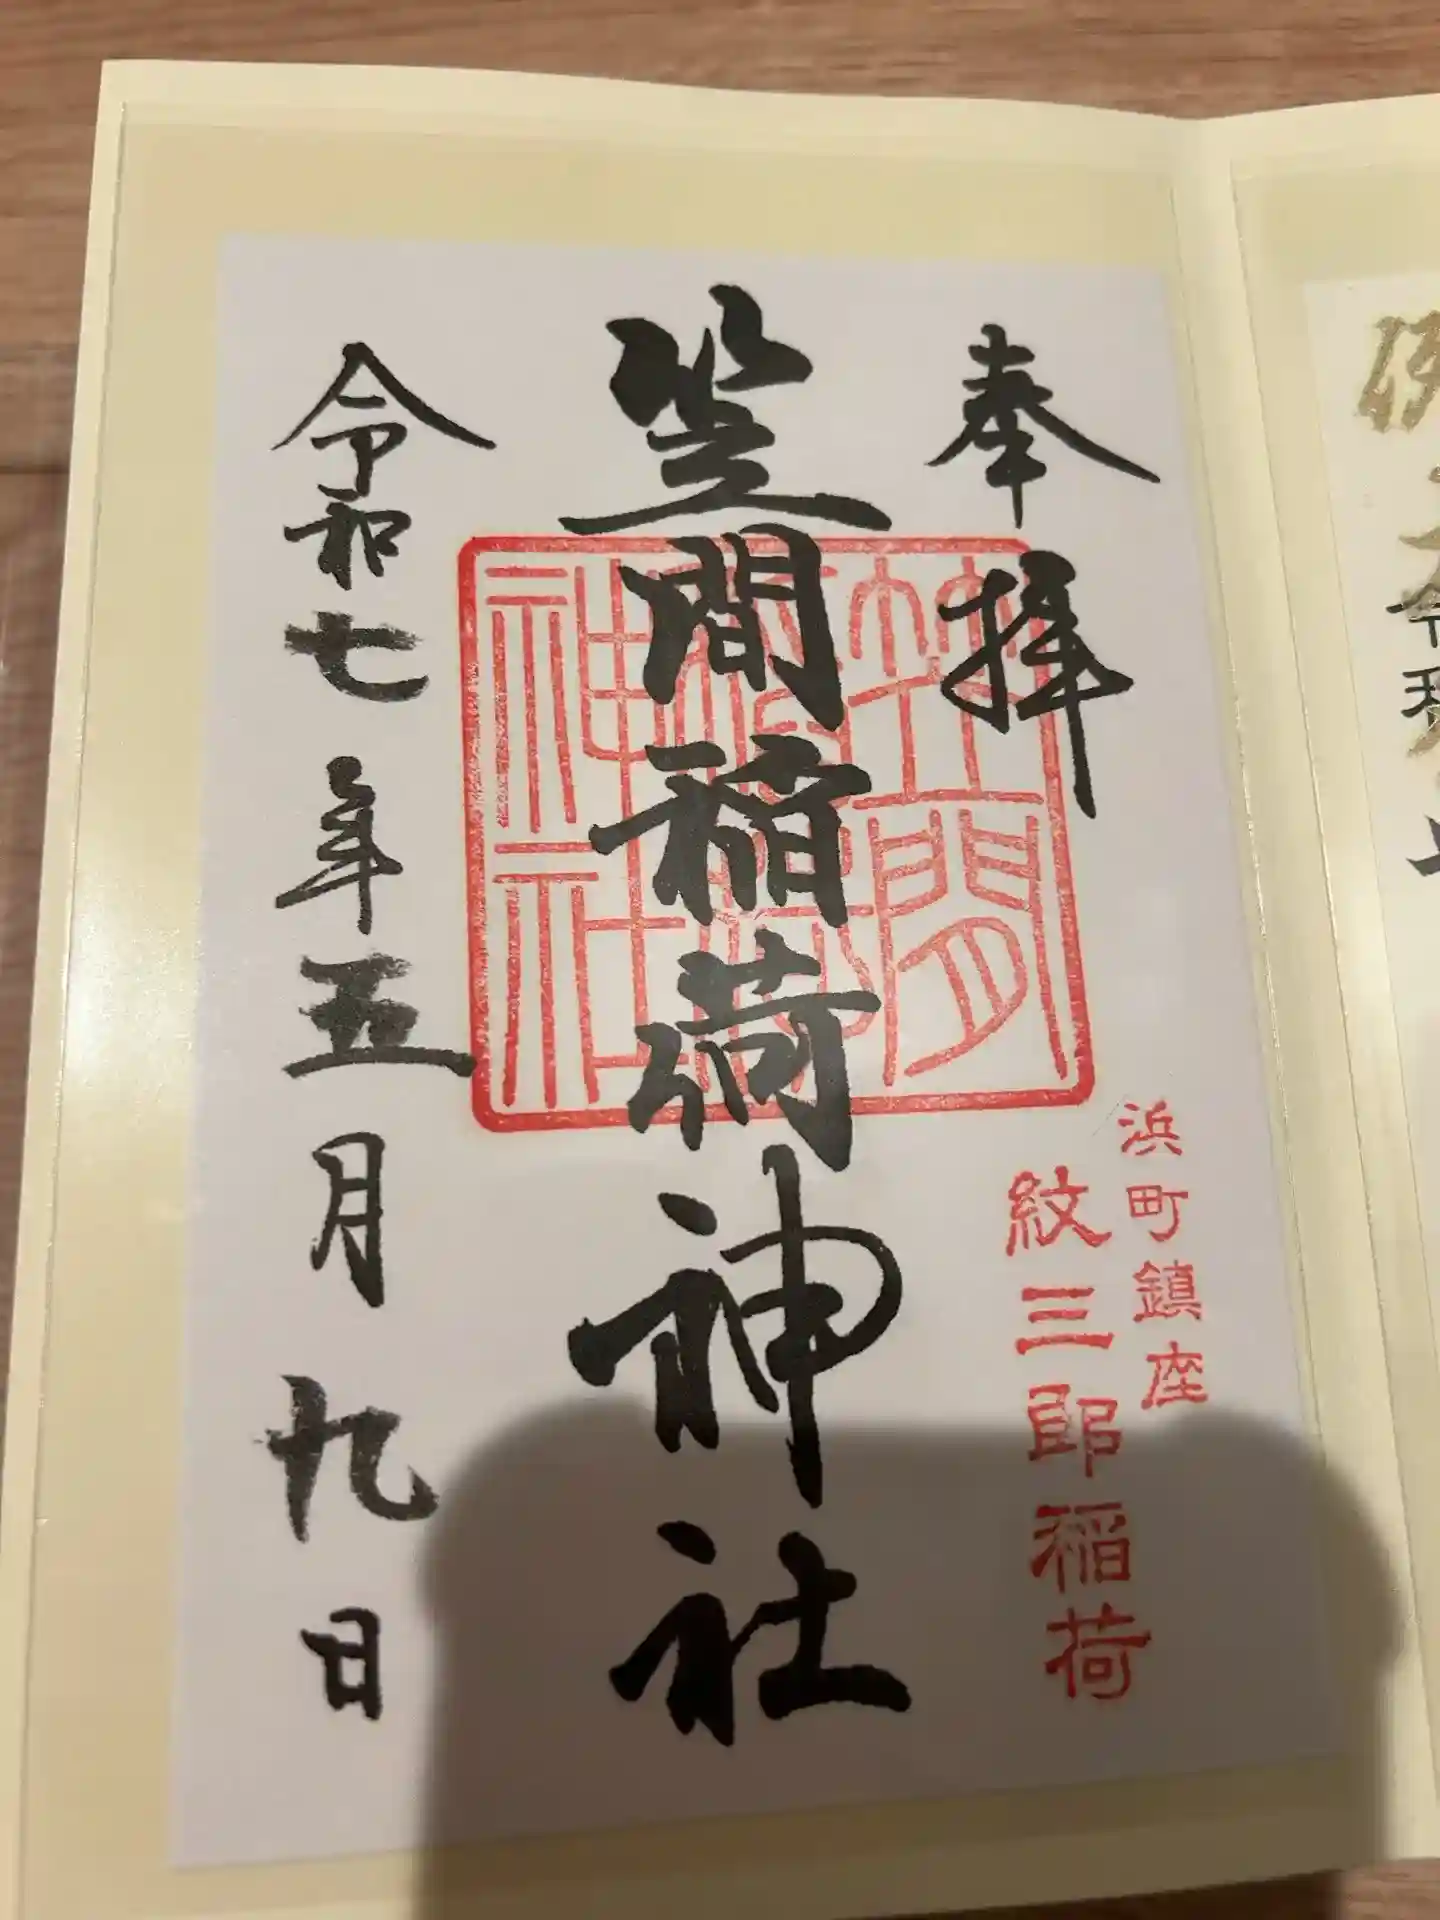 奉拝
浜町鎮座
紋三郎稲荷
笠間稲荷神社
笠間稲荷神社
令和七年五月九日